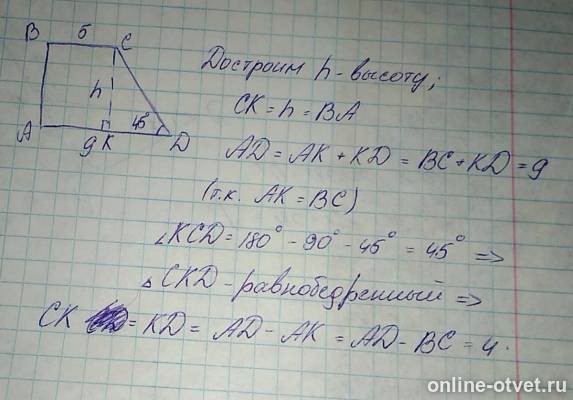 B б C
h
A g K 45° D
Достроим h - высоту;
CK = h = BA
AD = AK + KD = BC + KD = g
(т.к. AK = BC)
∠KCD = 180° - 90° - 45° = 45° =>
△CKD - равнобедренный =>
CK = KD = AD - AK = AD - BC = 4.
online-otvet.ru